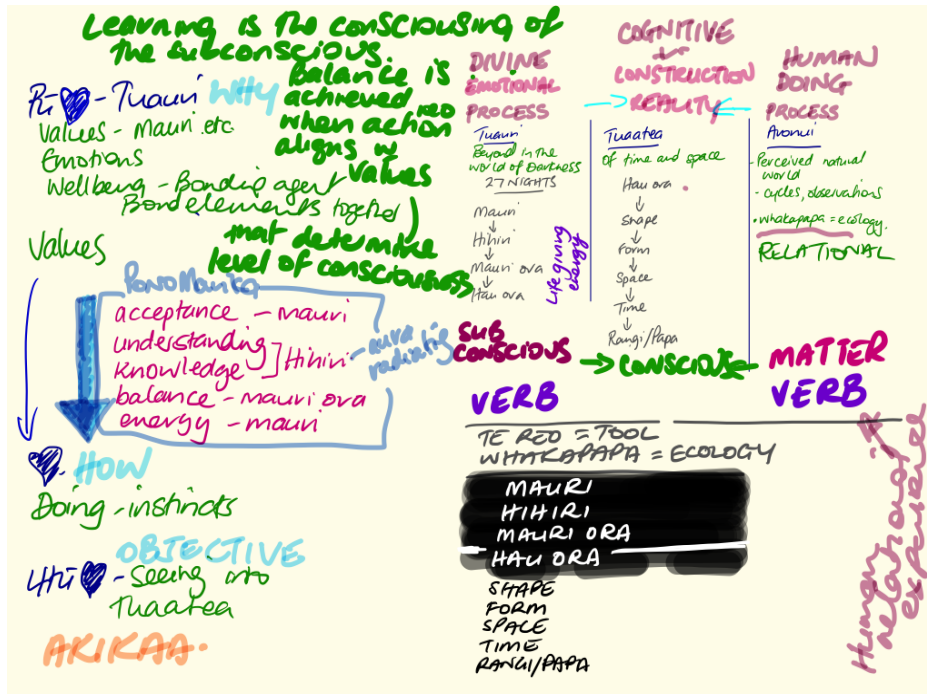 Learning is the consciousing of
the subconscious.
Balance is
achieved
when action
aligns w
values
REO
Pū ♥ - Tuauri WHY
Values - Mauri etc.
Emotions
Wellbeing - Bonding agent
Bond elements together
that determine
level of consciousness
Values
PonoManika
acceptance - mauri
understanding
knowledge ] Hihiri - aura
radiating
balance - mauri ora
energy - mauri
♥. HOW
Doing - instincts
OBJECTIVE
♥ - Seeing into
Tuaatea
AKIKAA.
DIVINE
EMOTIONAL
PROCESS
Tuauri
Beyond in the
world of Darkness
27 NIGHTS
Mauri
↓
Hihiri
↓
Mauri ora
↓
Hau ora
Life giving
energy
SUB
CONSCIOUS
VERB
COGNITIVE
CONSTRUCTION
→ REALITY ←
Tuaatea
of time and space
Hau ora
↓
Shape
↓
Form
↓
Space
↓
Time
↓
Rangi/Papa
→ CONSCIOUS ←
HUMAN
DOING
PROCESS
Aronui
- Perceived natural
world
- cycles, observations
• whakapapa = ecology.
RELATIONAL
MATTER
VERB
TE REO = TOOL
WHAKAPAPA = ECOLOGY
MAURI
HIHIRI
MAURI ORA
HAU ORA
SHAPE
FORM
SPACE
TIME
RANGI/PAPA
Human
relational
experience